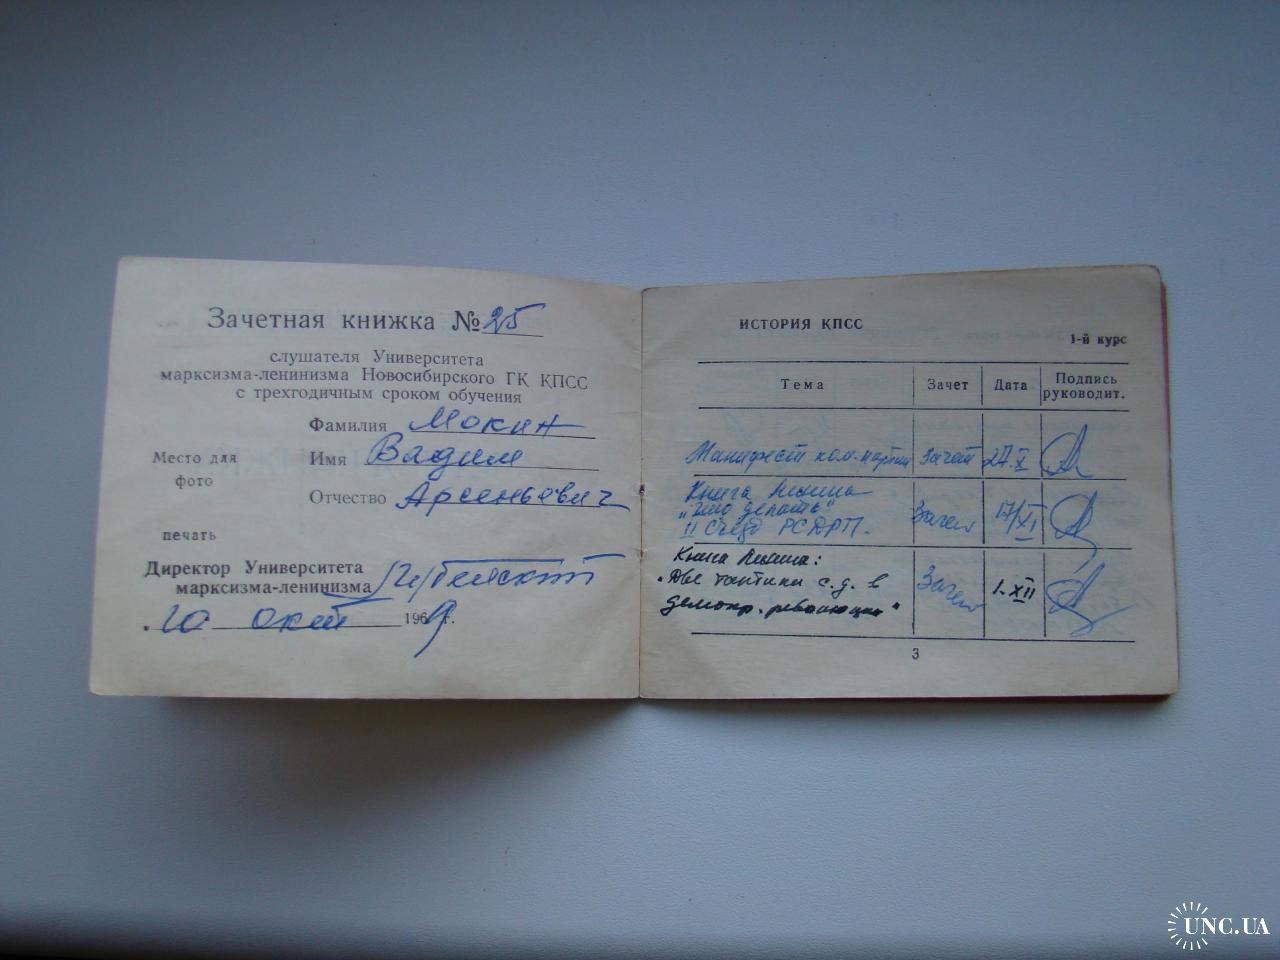 Зачетная книжка № 25
слушателя Университета
марксизма-ленинизма Новосибирского ГК КПСС
с трехгодичным сроком обучения
Фамилия Мокин
Место для
фото
Имя Вадим
Отчество Арсеньевич
печать
Директор Университета
марксизма-ленинизма
"20 окт 1969 г.
ИСТОРИЯ КПСС
1-й курс
Тема Зачет Дата Подпись руководит.
Манифест ком. партии Зачет 27.X
Книга Ленина
„Что делать"
II съезд РСДРП. Зачет 17/XI
Книга Ленина:
„Две тактики с.д. в
демокр. революции" Зачет 1.XII
3
UNC.UA